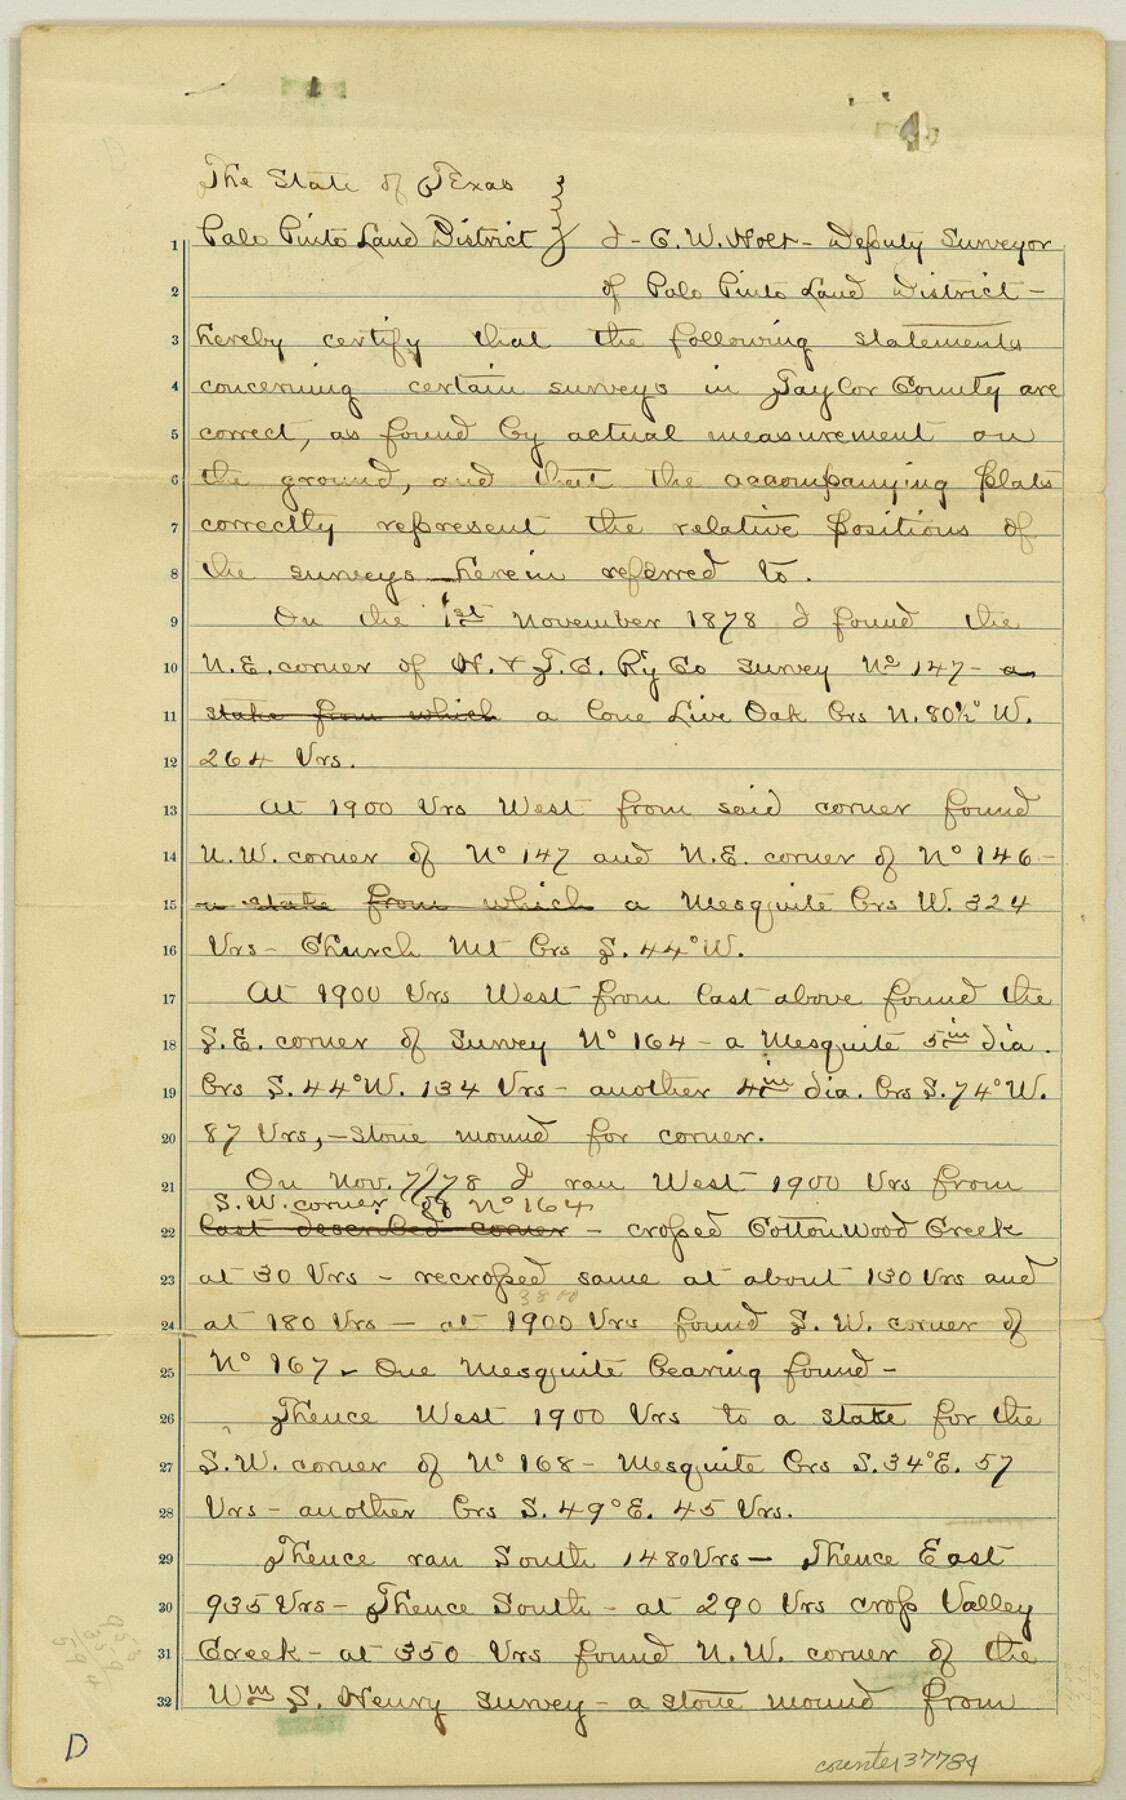 The State of Texas
1 Palo Pinto Land District } I - G. W. Holt - Deputy Surveyor
2 of Palo Pinto Land District -
3 hereby certify that the following statements
4 concerning certain surveys in Taylor County are
5 correct, as found by actual measurement on
6 the ground, and that the accompanying plats
7 correctly represent the relative positions of
8 the surveys herein referred to.
9 On the 1st November 1878 I found the
10 N.E. corner of H. & T. C. Ry Co survey No 147 - a
11 stake from which a lone Live Oak brs N. 80½° W.
12 264 Vrs.
13 At 1900 Vrs West from said corner found
14 N.W. corner of No 147 and N.E. corner of No 146 -
15 a stake from which a Mesquite brs W. 324
16 Vrs - Church Mt brs S. 44° W.
17 At 1900 Vrs West from last above found the
18 S.E. corner of Survey No 164 - a Mesquite 5in dia.
19 brs S. 44° W. 134 Vrs - another 4in dia. brs S. 74° W.
20 87 Vrs, - stone mound for corner.
21 On Nov. 7/78 I ran West 1900 Vrs from
S. W. corner of No 164
22 last described corner - crossed Cottonwood Creek
23 at 30 Vrs - recrossed same at about 130 Vrs and
3800
24 at 180 Vrs - at 1900 Vrs found S. W. corner of
25 No 167 - One Mesquite bearing found -
26 Thence West 1900 Vrs to a stake for the
27 S. W. corner of No 168 - Mesquite brs S. 34° E. 57
28 Vrs - another brs S. 49° E. 45 Vrs.
29 Thence ran South 1480 Vrs - Thence East
30 935 Vrs - Thence South - at 290 Vrs cross Valley
31 Creek - at 350 Vrs found N. W. corner of the
32 Wm S. Henry survey - a stone mound from
D
counter 37784